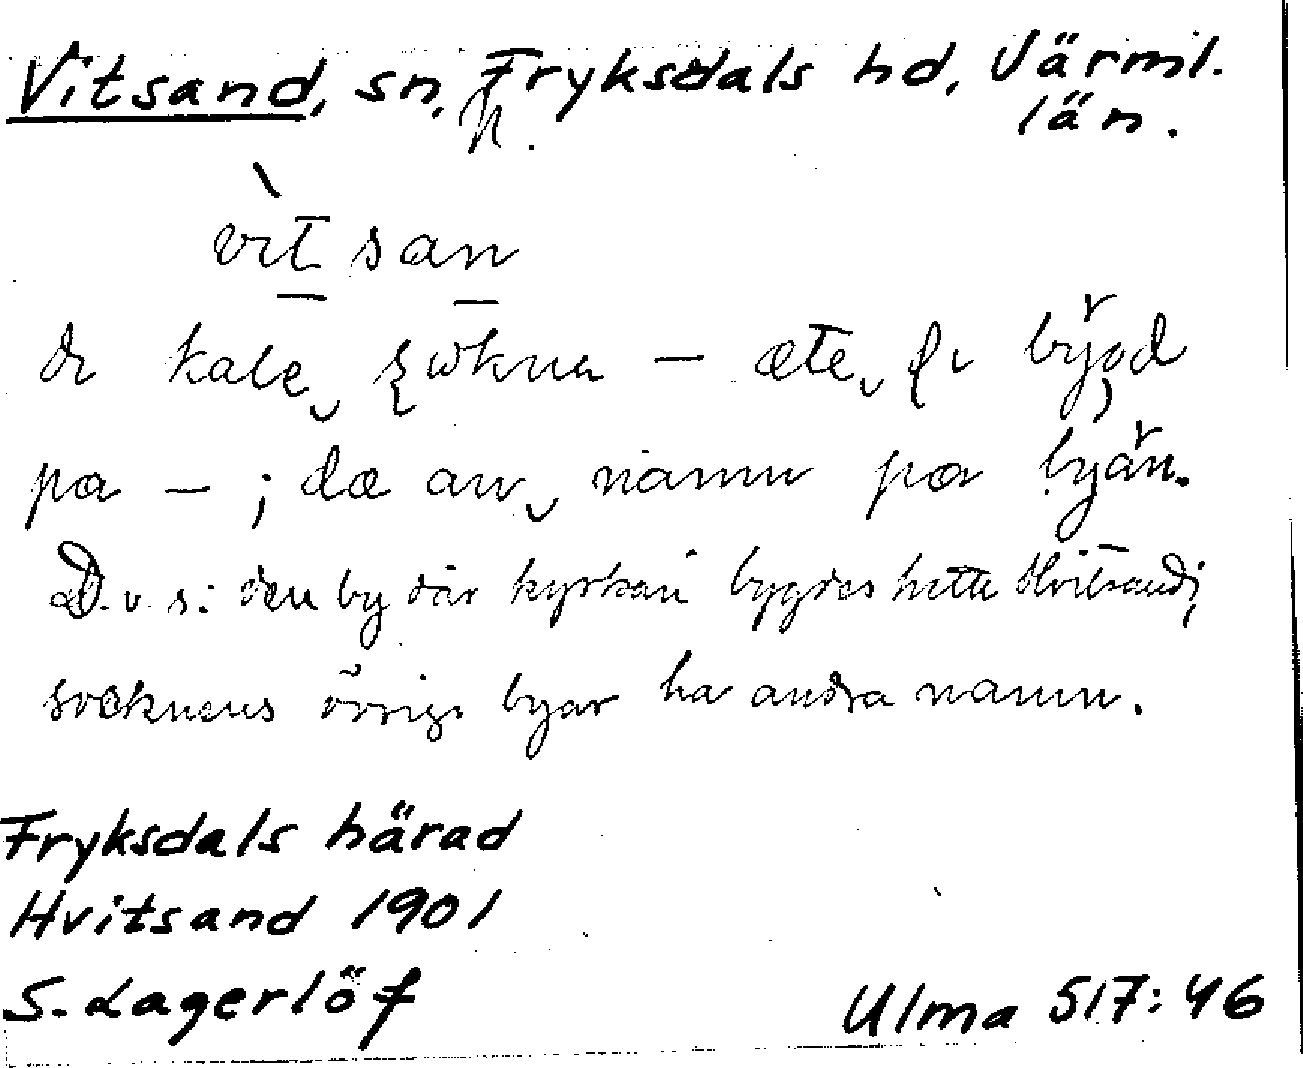 Vitsand, sn, Fryksdals hd, Värml.
län.
n.
vìt san
di kale sokna — æte di bygd
pa — ; dæ æn namn pa byän.
D.v.s: den by där kyrkan bygdes hette Hvitsand;
socknens övriga byar ha andra namn.
Fryksdals härad
Hvitsand 1901
S. Lagerlöf
Ulma 517:46